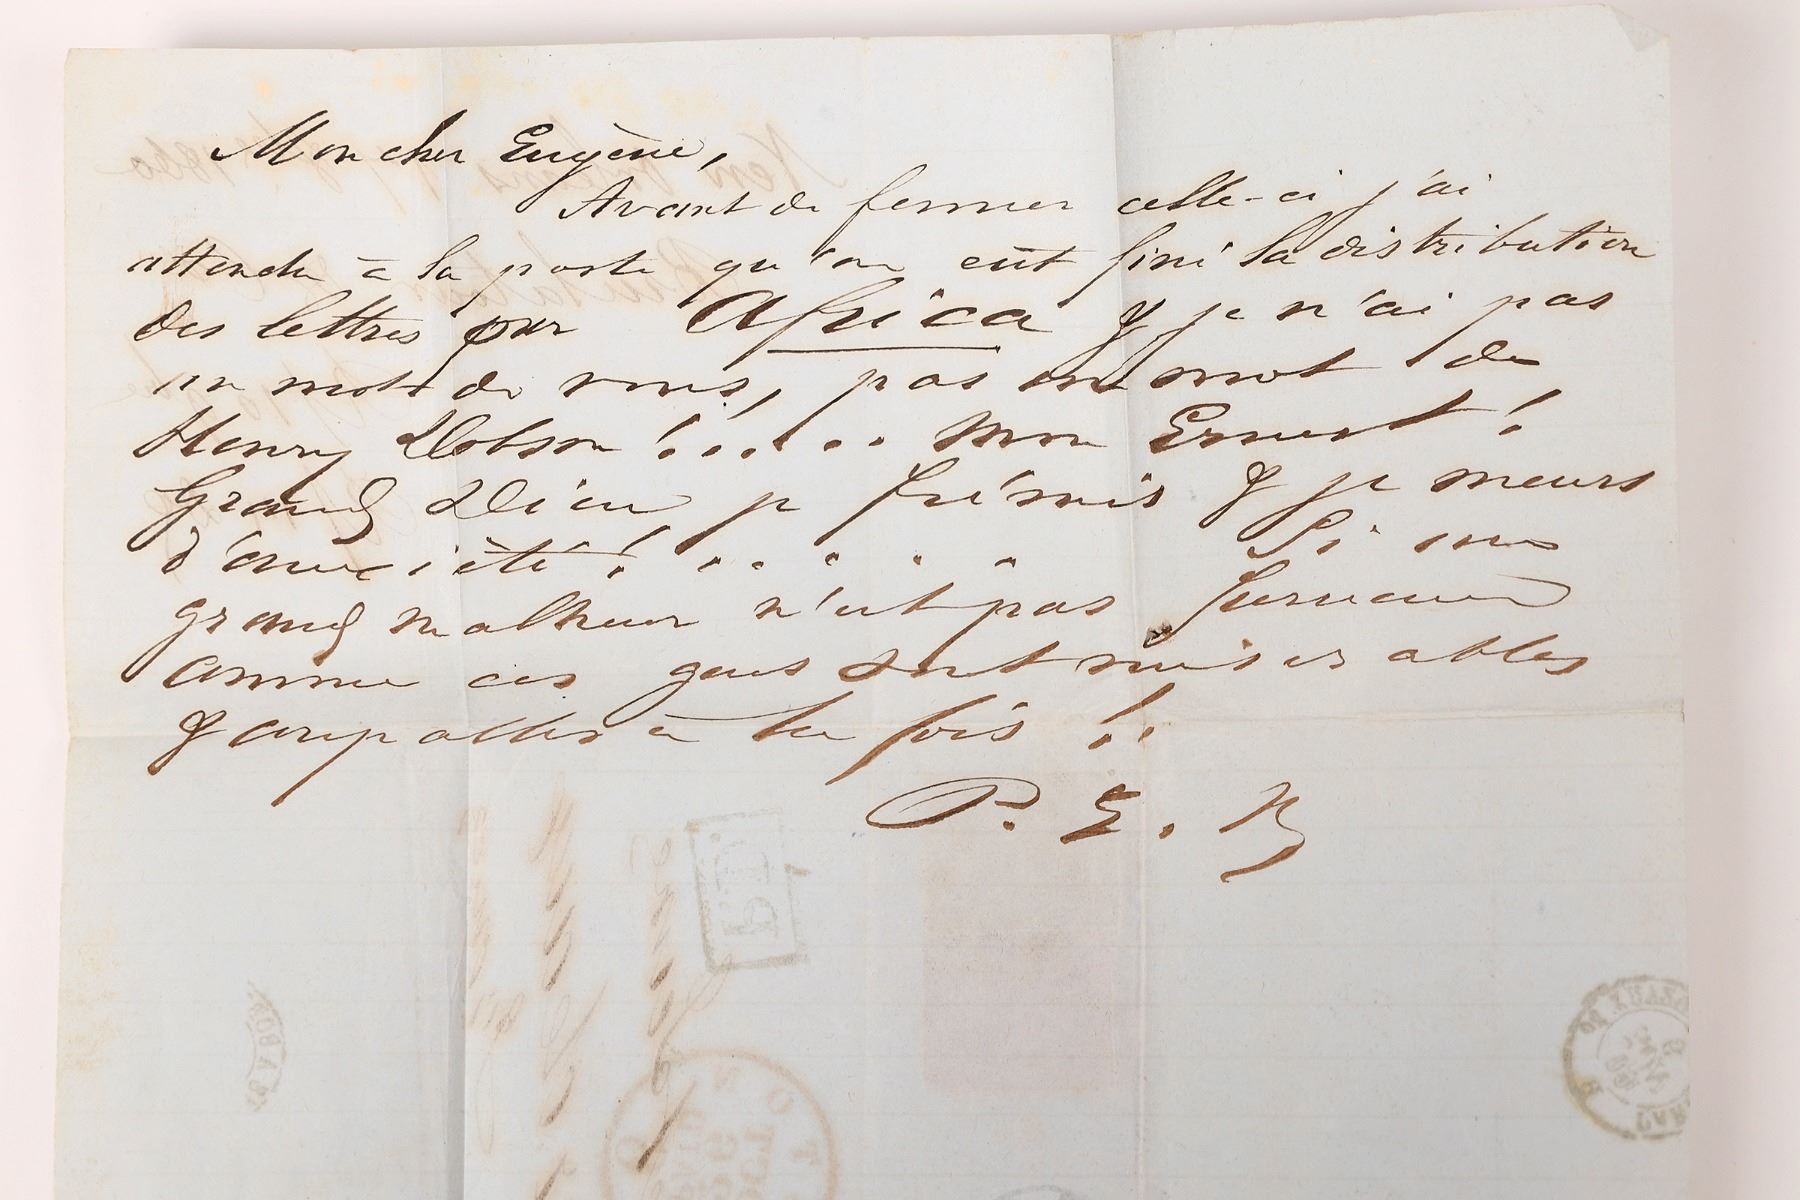 Mon cher Eugène,
Avant de fermer celle-ci j'ai
attendu à la poste qu'on eût fini la distribution
des lettres par Africa & je n'ai pas
un mot de vous, pas un mot de
Henry Hobson !..... Mon Ernest !
Grand Dieu je frémis & je meurs
d'anxiété ! ..... Si un
grand malheur n'est pas survenu
comme ces gens sont misérables
& coupables à la fois !.
P. E. B